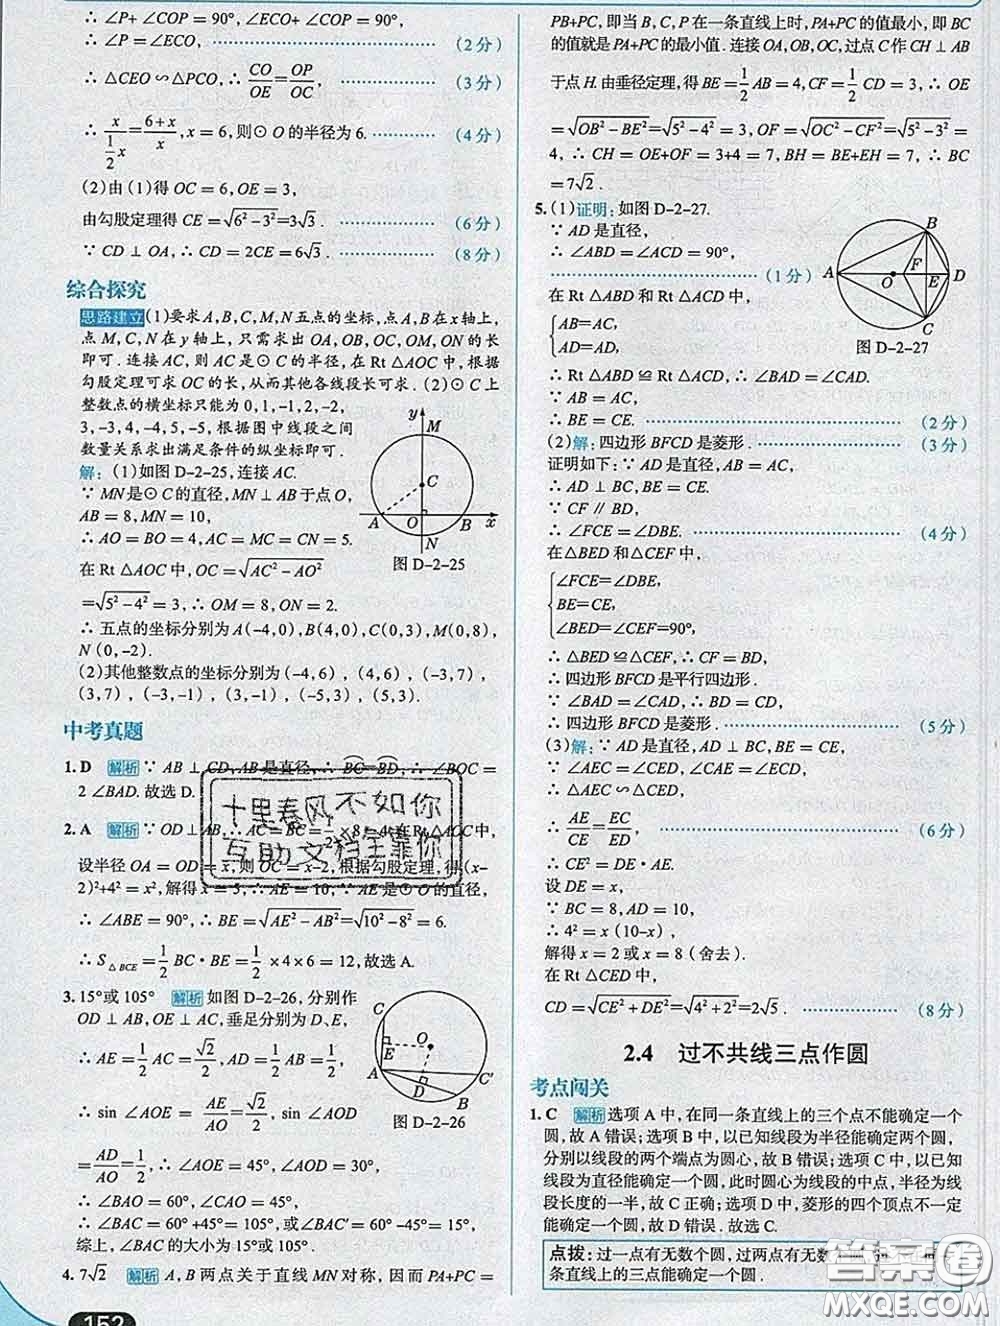 ∴ ∠P+ ∠COP = 90°, ∠ECO+ ∠COP = 90°,
∴ ∠P = ∠ECO, (2分)
∴ △CEO ∽ △PCO, ∴ CO/OE = OP/OC, (3分)
∴ x/(1/2 x) = (6+x)/x, x = 6, 则⊙O的半径为6. (4分)
(2)由(1)得 OC = 6, OE = 3,
由勾股定理得 CE = √(6²－3²) = 3√3. (6分)
∵ CD ⊥ OA, ∴ CD = 2CE = 6√3. (8分)
综合探究
思路建立 (1)要求A, B, C, M, N五点的坐标, 点A, B在x轴上,
点M, C, N在y轴上, 只需求出OA, OB, OC, OM, ON的长
即可. 连接AC, 则AC是⊙C的半径, 在Rt△AOC中, 根据
勾股定理可求OC的长, 从而其他各线段长可求. (2)⊙C上
整数点的横坐标只能为0, 1, -1, 2, -2,
3, -3, 4, -4, 5, -5, 根据图中线段之间
数量关系求出满足条件的纵坐标即可.
解: (1)如图D-2-25, 连接AC.
∵ MN是⊙C的直径, MN ⊥ AB于点O,
AB = 8, MN = 10,
∴ AO = BO = 4, AC = MC = CN = 5.
在Rt△AOC中, OC = √(AC²－AO²)
= √(5²－4²) = 3, ∴ OM = 8, ON = 2.
∴ 五点的坐标分别为A(-4,0), B(4,0), C(0,3), M(0,8),
N(0,-2).
(2)其他整数点的坐标分别为(-4,6), (4,6), (-3,7),
(3,7), (-3,-1), (3,-1), (-5,3), (5,3).
y
M
C
A
O
B
x
N
图D-2-25
中考真题
1. D 解析 ∵ AB ⊥ CD, AB是直径, ∴ BC = BD, ∴ ∠BOC =
2∠BAD. 故选D.
2. A 解析 ∵ OD⊥AB, ∴ AC = BC = 1/2 × 8 = 4. 在Rt△AOC中,
设半径OA = OD = x, 则OC = x-2, 根据勾股定理, 得(x-
2)²+4² = x², 解得x = 5, ∴ AE = 10, ∵ AE是⊙O的直径,
∴ ∠ABE = 90°, ∴ BE = √(AE²－AB²) = √(10²－8²) = 6.
∴ S△BCE = 1/2 BC·BE = 1/2 ×4×6 = 12, 故选A.
3. 15°或105° 解析 如图D-2-26, 分别作
OD ⊥ AB, OE ⊥ AC, 垂足分别为D、E,
∴ AE = 1/2 AC = √2/2, AD = 1/2 AB = 1/2,
∴ sin ∠AOE = AE/AO = √2/2, sin ∠AOD
= AD/AO = 1/2, ∴ ∠AOE = 45°, ∠AOD = 30°,
∴ ∠BAO = 60°, ∠CAO = 45°,
∴ ∠BAC = 60°+45° = 105°, 或∠BAC′ = 60°－45° = 15°,
综上, ∠BAC的大小为15°或105°.
C
E
O
A
D
B
C′
图D-2-26
4. 7√2 解析 A, B两点关于直线MN对称, 因而PA+PC =
152
PB+PC, 即当B, C, P在一条直线上时, PA+PC的值最小, 即BC
的值就是PA+PC的最小值. 连接OA, OB, OC, 过点C作CH ⊥ AB
于点H. 由垂径定理, 得BE = 1/2 AB = 4, CF = 1/2 CD = 3, ∴ OE
= √(OB²－BE²) = √(5²－4²) = 3, OF = √(OC²－CF²) = √(5²－3²) =
4, ∴ CH = OE+OF = 3+4 = 7, BH = BE+EH = 7, ∴ BC
= 7√2.
5. (1)证明: 如图D-2-27.
∵ AD是直径,
∴ ∠ABD = ∠ACD = 90°,
(1分)
在Rt△ABD和Rt△ACD中,
AB = AC,
AD = AD,
∴ Rt△ABD ≌ Rt△ACD, ∴ ∠BAD = ∠CAD.
∵ AB = AC,
∴ BE = CE. (2分)
B
A
O
F
E
D
C
图D-2-27
(2)解: 四边形BFCD是菱形. (3分)
证明如下: ∵ AD是直径, AB = AC,
∴ AD ⊥ BC, BE = CE.
∵ CF ∥ BD,
∴ ∠FCE = ∠DBE. (4分)
在△BED和△CEF中,
∠FCE = ∠DBE,
BE = CE,
∠BED = ∠CEF = 90°,
∴ △BED ≌ △CEF, ∴ CF = BD,
∴ 四边形BFCD是平行四边形.
∵ ∠BAD = ∠CAD, ∴ BD = CD,
∴ 四边形BFCD是菱形. (5分)
(3)解: ∵ AD是直径, AD ⊥ BC, BE = CE,
∵ ∠AEC = ∠CED, ∠CAE = ∠ECD,
∴ △AEC ∽ △CED,
∴ AE/CE = EC/ED, (6分)
∴ CE² = DE·AE.
设DE = x,
∵ BC = 8, AD = 10,
∴ 4² = x(10-x),
解得x = 2或x = 8(舍去).
在Rt△CED中,
CD = √(CE²+DE²) = √(4²+2²) = 2√5. (8分)
2.4 过不共线三点作圆
考点闯关
1. C 解析 选项A中, 在同一条直线上的三个点不能确定一个
圆, 故A错误; 选项B中, 以已知线段为半径能确定两个圆,
分别以线段的两个端点为圆心, 故B错误; 选项C中, 以已知
线段为直径能确定一个圆, 此时圆心为线段的中点, 半径为线
段长度的一半, 故C正确; 选项D中, 菱形的四个顶点不一定
能确定一个圆, 故D错误. 故选C.
点拨: 过一点有无数个圆, 过两点有无数
条直线上的三点能确定一个圆.
十里春风不如你
互助文档全靠你
答案圈
MXQE.COM